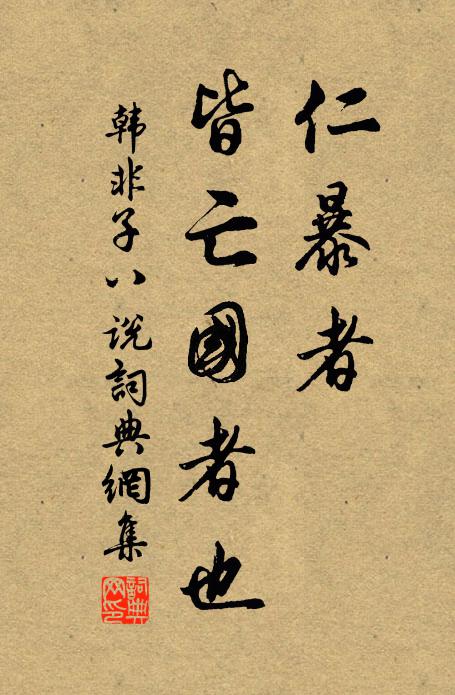 仁暴者
皆亡國者也
韩非子八说詞典網集
詞典
网印